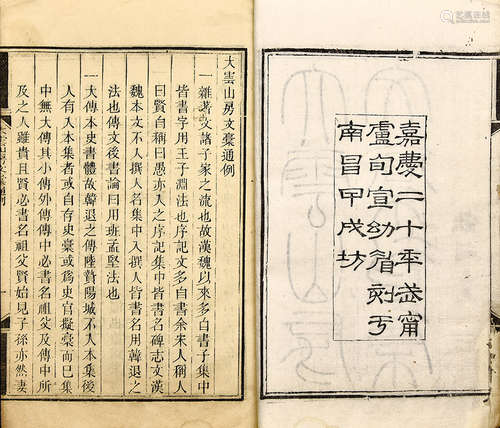 嘉慶二十年武甯
盧旬宣幼眉刻于
南昌甲戌坊
大雲山房文稾通例
一雜著文諸子家之流也故漢魏以來多自書子集中
皆書字用王子淵法也序記文多自書余來人稱人
曰賢自稱曰愚亦人之序記集中皆書名碑志文漢
魏本文不入撰人名集中入撰人皆書名用韓退之
法也傳文後書論曰用班孟堅法也
一大傳本史書體故韓退之傳陸贄陽城不入本集後
人有入本集者或自存史稾或爲史官擬稾而已集
中無大傳其小傳外傳傳中必書名祖父及傳中所
及之人雖貴且賢必書名祖父賢始見子孫亦然妻